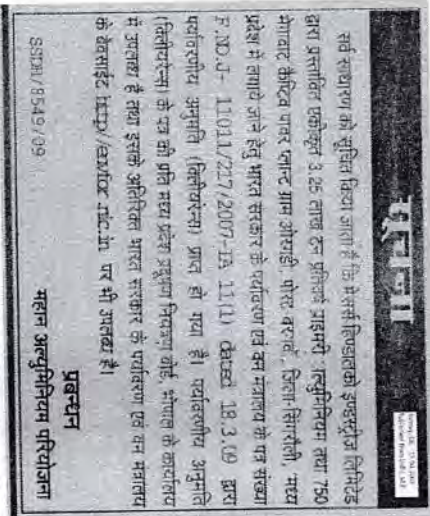 सूचना
सर्व साधारण को सूचित किया जाता है कि मेसर्स हिण्डालको इण्डस्ट्रीज लिमिटेड
द्वारा प्रस्तावित एकीकृत 3.25 लाख टन प्रतिवर्ष प्राइमरी एल्युमिनियम तथा 750
मेगावाट कैप्टिव पावर प्लान्ट ग्राम पोस्ट बरगवां, जिला-सिंगरौली, मध्य
प्रदेश में लगाये जाने हेतु भारत सरकार के पर्यावरण एवं वन मंत्रालय के पत्र संख्या
F.NO.J- 11011/217/2007-IA II(I) dated 18.3.09 द्वारा
पर्यावरणीय अनुमति (क्लीयरेन्स) प्राप्त हो गया है। पर्यावरणीय अनुमति
(क्लीयरेन्स) के पत्र की प्रति मध्य प्रदेश प्रदूषण नियंत्रण बोर्ड, भोपाल के कार्यालय
में उपलब्ध है तथा इसके अतिरिक्त भारत सरकार के पर्यावरण एवं वन मंत्रालय
के वेबसाईट http//envfor.nic.in पर भी उपलब्ध है।
प्रबन्धन
महान अल्युमिनियम परियोजना
SSDH/8549/09